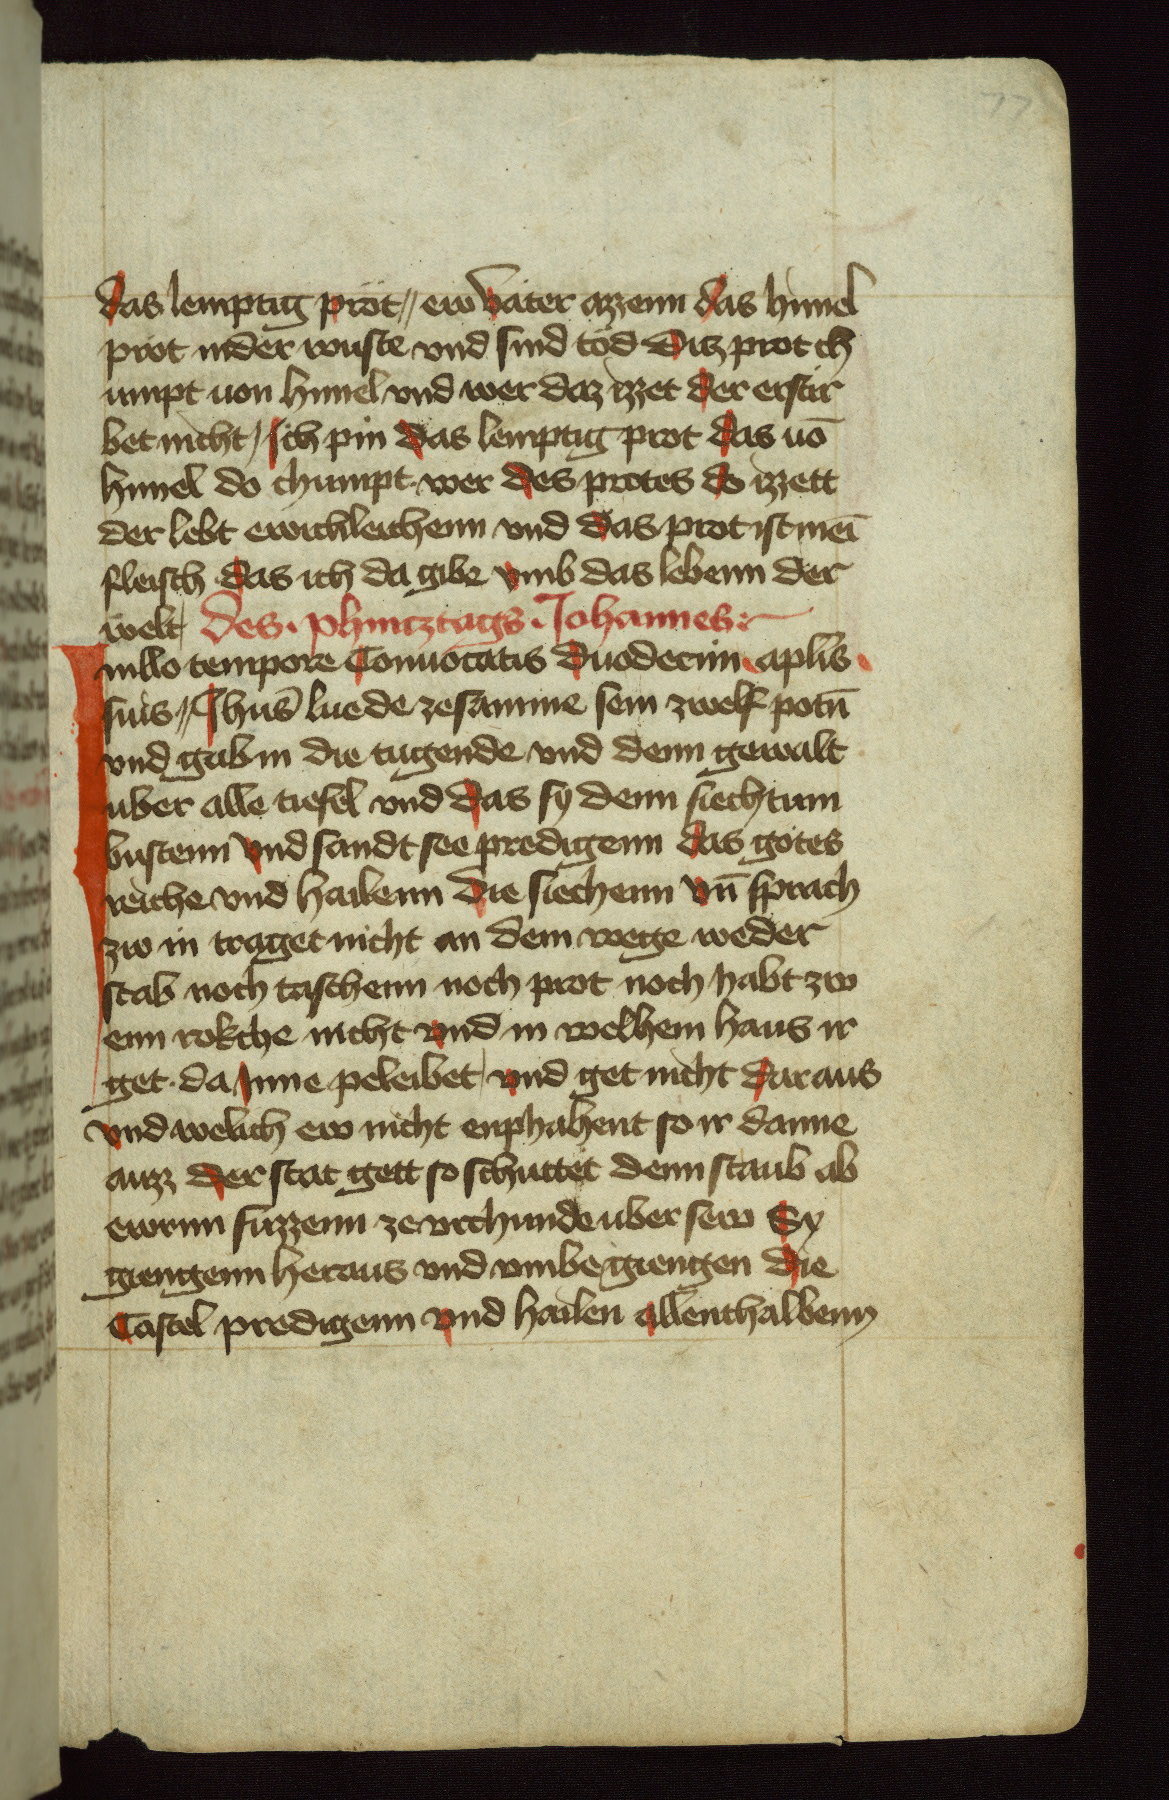 77
das lemptig prot // ew vater azzenn das himel
prot in der wuste vnd sind tod Ditz prot ch
umpt uon himel vnd wer daz izzet der erstir
bet nicht / Ich pin das lemptig prot das uō
himel do chumpt wer des protes do izzett
der lebt ewichleichenn vnd das prot ist mei
̄fleisch das ich da gibe vmb das lebenn der
welt / Des · phintztags · Johannes ·
In illo tempore Conuocatis duodecim · aplis ·
suis // Ihus̄ luede zesamme sein zwelf potn̄
vnd gab in die tugende vnd denn gewalt
uber alle tiefel vnd das sy denn siechtum
bustenn vnd sandt see predigenn das gotes
reiche vnd hailenn die siechenn vn̄ sprach
zw in traget nicht an dem wege weder
stab noch taschenn noch prot noch habt zw
enn rokche nicht vnd in welhem haus ir
get · da Inne peleibet / vnd get nicht daraus
vnd welich ew nicht enphahent so ir danne
auzz der stat gett so schuttet denn staub ab
ewrnn fuzzenn ze vrchunde uber sew Sy
giengenn heraus vnd vmbegiengen die
Castel predigenn vnd hailen allenthalbenn